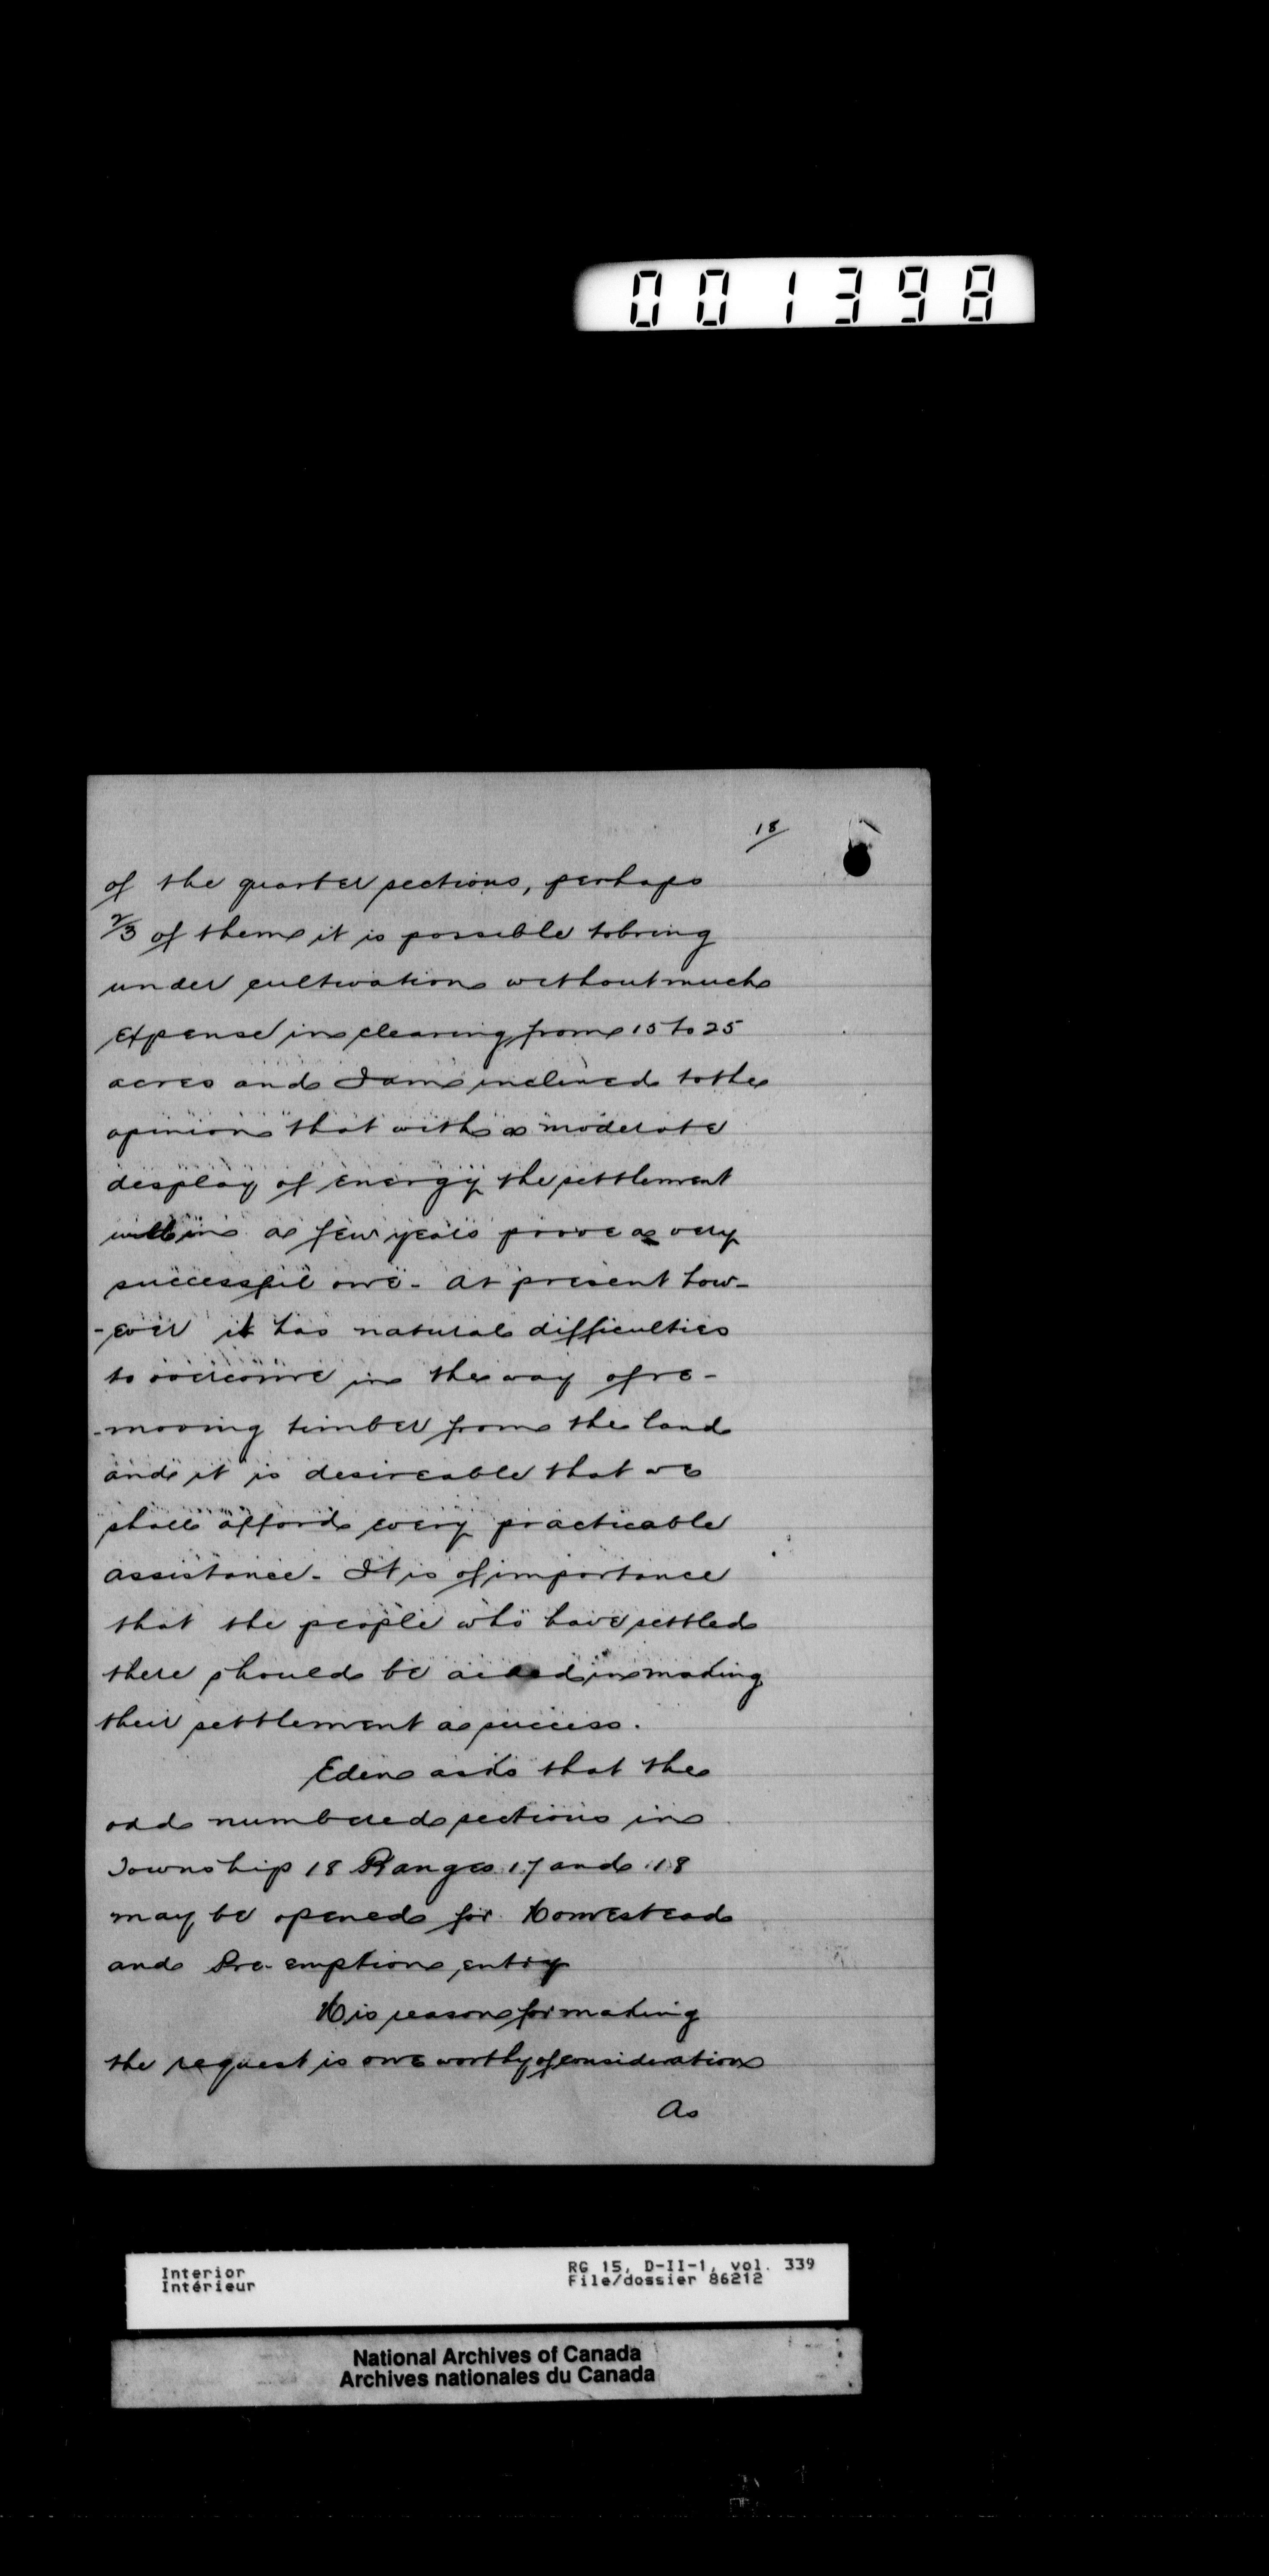 001398
18
of the quarter sections, perhaps
2/3 of them it is possible to bring
under cultivation without much
expense in clearing from 15 to 25
acres and I am inclined to the
opinion that with a moderate
display of energy the settlement
will in a few years prove a very
successful one - At present how-
-ever it has natural difficulties
to overcome in the way of re-
-moving timber from the land
and it is desireable that we
shall afford every practicable
assistance - It is of importance
that the people who have settled
there should be aided in making
their settlement a success.
Eden asks that the
odd numbered sections in
Township 18 Ranges 17 and 18
may be opened for Homestead
and Pre-emption entry
His reason for making
the request is one worthy of consideration
As
Interior
Intérieur
RG 15, D-II-1, vol. 339
File/dossier 86212
National Archives of Canada
Archives nationales du Canada